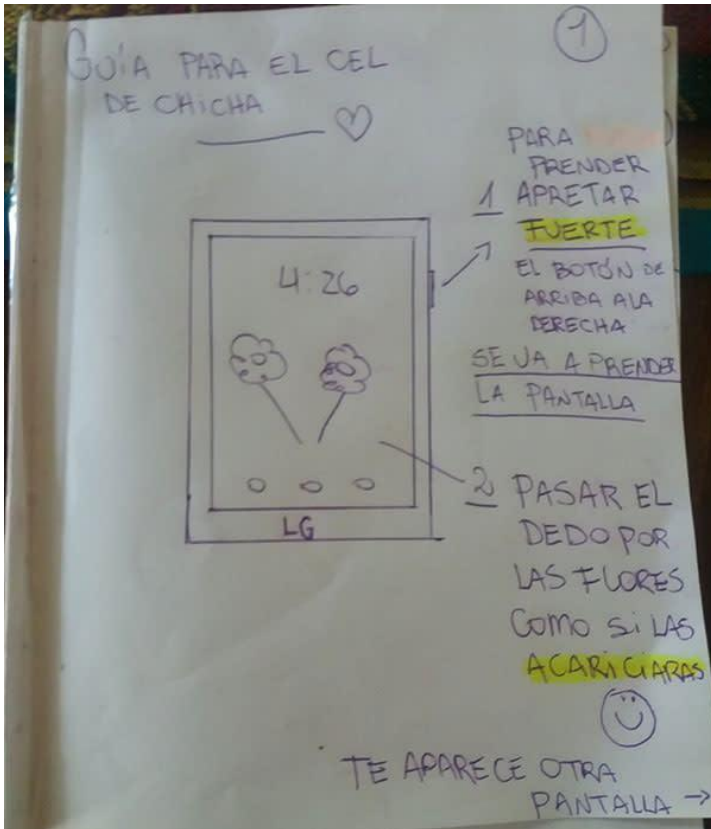 1
GUÍA PARA EL CEL
DE CHICHA
PARA
PRENDER
1 APRETAR
FUERTE
EL BOTÓN DE
ARRIBA A LA
DERECHA
SE VA A PRENDER
LA PANTALLA
4:26
LG
2 PASAR EL
DEDO POR
LAS FLORES
COMO SI LAS
ACARICIARAS
TE APARECE OTRA
PANTALLA →